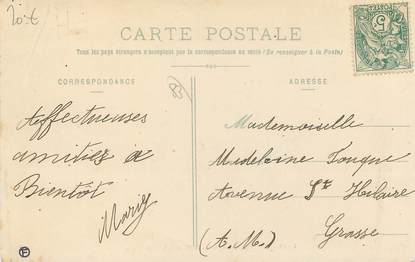 20-E
CARTE POSTALE
Tous les pays étrangers n'acceptent pas la correspondance au verso (Se renseigner à la Poste)
CORRESPONDANCE
ADRESSE
83
5
Affectueuses
amitiés a
Bientôt
Mademoiselle
Madeleine
Avenue St Hilaire
Grasse
(A. M.)